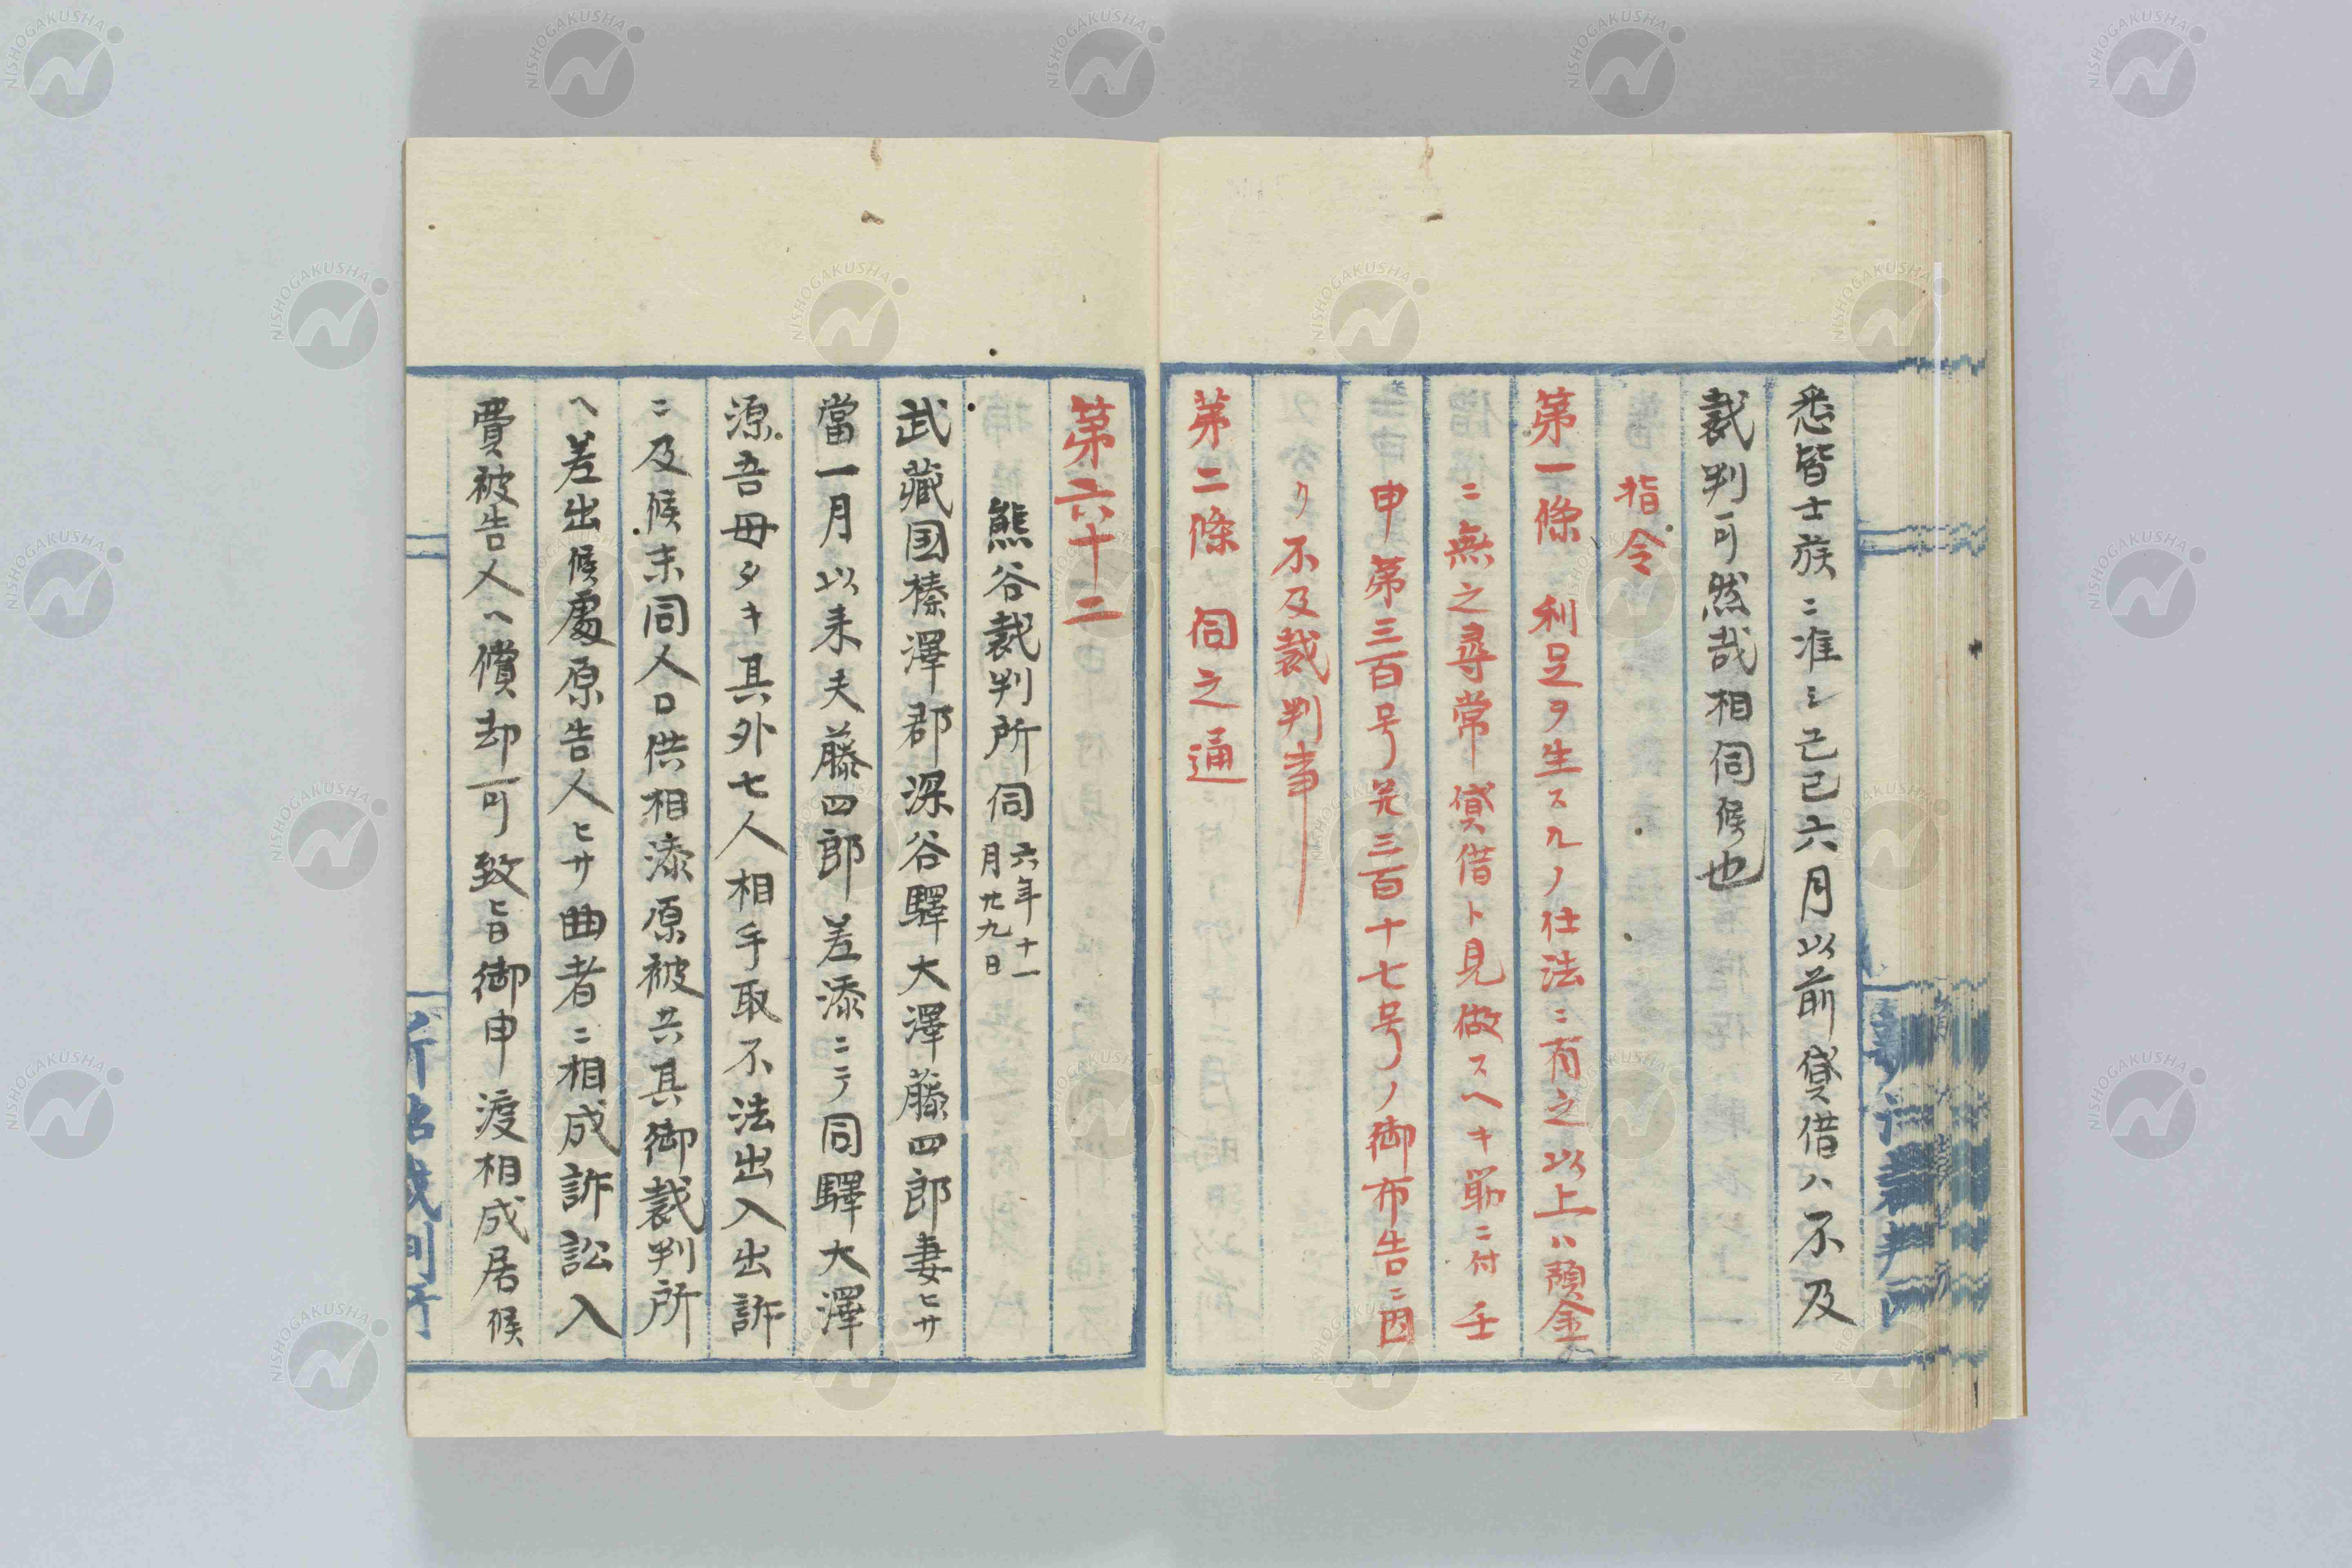 悉皆士族ニ准シ己巳六月以前貸借ハ不及
裁判可然哉相伺候也
指令
第一條 利足ヲ生スルノ仕法ニ有之以上ハ預金
ニ無之尋常貸借ト見做スヘキ筋ニ付壬
申第三百号第三百十七号ノ御布告ニ因
リ不及裁判事
第二條 伺之通
第六十二
熊谷裁判所伺 六年十一
月廿九日
武藏国榛澤郡深谷驛大澤藤四郎妻ヒサ
當一月以来夫藤四郎差添ニテ同驛大澤
源吾母タキ其外七人相手取不法出入出訴
ニ及候末同人口供相添原被共其御裁判所
ヘ差出候處原告人ヒサ曲者ニ相成訴訟入
費被告人ヘ償却可致旨御申渡相成居候
NISHOGAKUSHA